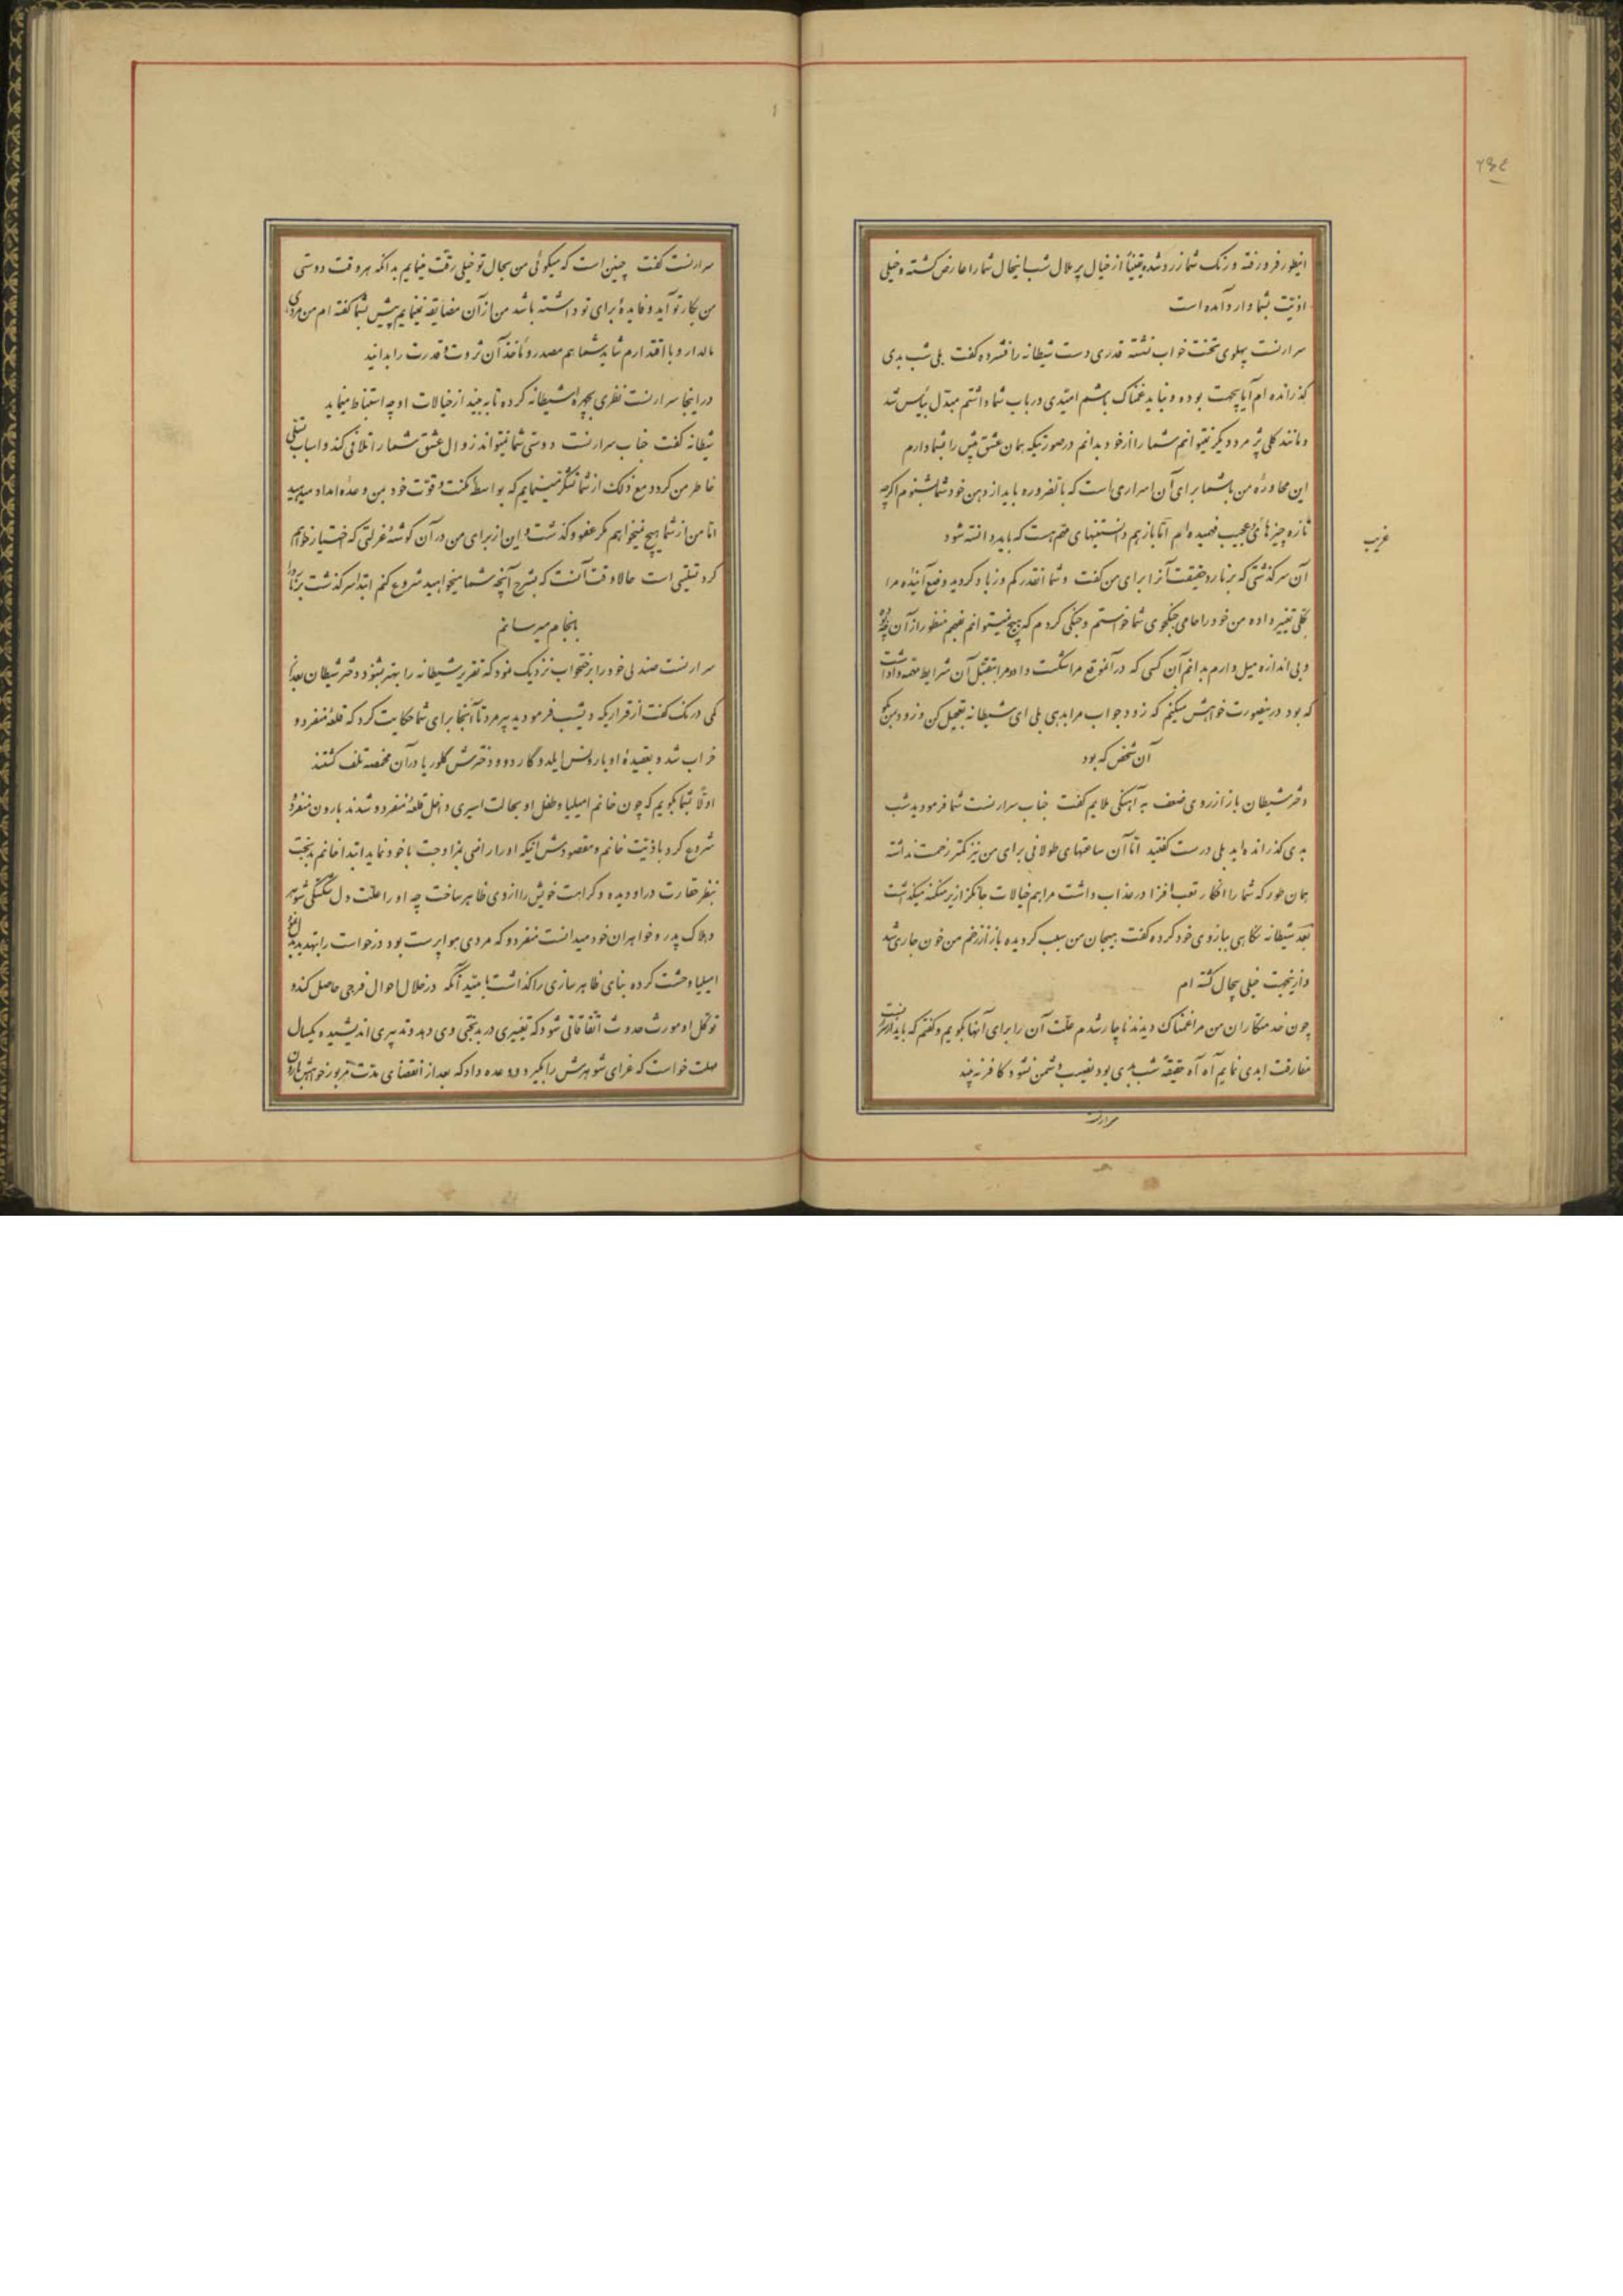 ۲۳۴
اینطور فرو رفته و رنک شما زرد شده یقیناً از خیال پر ملال شب اینحال شما را عارض کشته و خیلی
اذیّت بشما وارد آمده است
سرارنست پهلوی تخت خواب نشسته قدری دست شیطانه را فشرده کفت بلی شب بدی
کذرانده ام آیا بیجهت بوده و نباید غمناک باشم امیّدی در باب شما داشتم مبدّل بیأس شد
و مانند کلی پژمرده دیکر نمیتوانم شما را از خود بدانم در صورتیکه همان عشق پیش را بشما دارم
این محاوره من با شما برای آن اسراری است که بالضروره باید از دهن خود شما بشنوم اکرچه
تازه چیزهای عجیب فهمیده ام امّا باز هم دانستنیهای مهم هست که باید دانسته شود
غریب
آن سرکذشتی که برنارد حقیقت آنرا برای من کفت و شما آنقدر کم و زیاد کردید وضع آینده مرا
بکلّی تغییر داده من خود را حامی جنکجوی شما خواستم و جنکی کردم که هیچ نمیتوانم بفهم منظور از آن چه بود
و بی اندازه میل دارم بدانم آن کسی که در آنموقع مرا شکست داد و مرا بتقبّل آن شرایط مهمه واداشت
که بود در اینصورت خواهش میکنم که زود جواب مرا بدهی بلی ای شیطانه تعجیل کن و زود بمن بکو
آن شخص که بود
دختر شیطان باز از روی ضعف به آهنکی ملایم کفت جناب سرارنست شما فرمودید شب
بدی کذرانده اید بلی درست کفتید امّا آن ساعتهای طولانی برای من نیز کمتر زحمت نداشته
همان طور که شما را افکار تعب افزا در عذاب داشت مرا هم خیالات جانکزا زیر شکنجه میکذاشت
بعد شیطانه نکاهی ببازوی خود کرده کفت هیجان من سبب کردیده باز از زخم من خون جاری شد
و از اینجهت خیلی بیحال کشته ام
چون خدمتکاران من مرا غمناک دیدند ناچار شدم علّت آن را برای آنها بکویم و کفتم که باید از سرارنست
مفارقت ابدی نمایم آه آه حقیقة شب بدی بود نصیب دشمن نشود کافر نه بیند
سرارنست
سرارنست کفت چنین است که میکوئی من بحال تو خیلی رقّت مینمایم بدانکه هر وقت دوستی
من بکار تو آید و فایدهٔ برای تو داشته باشد من از آن مضایقه نمینمایم پیش بشما کفته ام من مردی
مالدار و با اقتدارم شاید شما هم مصدر و مأخذ آن ثروت و قدرت را بدانید
در اینجا سرارنست نظری بچهره شیطانه کرده تا به بیند از خیالات او چه استنباط مینماید
شیطانه کفت جناب سرارنست دوستی شما نمیتواند زوال عشق شما را تلافی کند و اسباب تسلّی
خاطر من کردد مع ذلک از شما تشکّر مینمایم که بواسطهٔ مکنت و قوّت خود بمن وعده امداد میدهید
امّا من از شما هیچ نمیخواهم مکر عفو و کذشت و این از برای من در آن کوشهٔ عزلتی که اختیار خواهم
کرد تسلّیتی است حالا وقت آنست که بشرح آنچه شما میخواهید شروع کنم ابتدا سرکذشت برنارد را
بانجام میرسانم
سرارنست صندلی خود را بتختخواب نزدیک نمود که تقریر شیطانه را بهتر بشنود دختر شیطان بعد از
کمی درنک کفت از قراریکه دیشب فرمودید پیرمرد تا آنجا برای شما حکایت کرد که قلعهٔ منفردو
خراب شد و بعقیدهٔ او بارونس ایلدگارد و دو دخترش کلوریا در آن مخمصه تلف کشتند
اوّلاً بشما بکویم که چون خانم امیلیا و طفل او بحالت اسیری داخل قلعهٔ منفردو شدند بارون منفردو
شروع کرد باذیّت خانم و مقصودش آنیکه او را راضی بمزاوجت با خود نماید ابتدا خانم بدبخت
بنظر حقارت در او دیده و کراهت خویش را از وی ظاهر ساخت چه او را علّت دل شکستکی شوهر
و هلاک پدر و خواهران خود میدانست منفردو که مردی هوا پرست بود درخواست را بتهدید
امیلیا وحشت کرده بنای ظاهر سازی را کذاشت بامید آنکه در خلال احوال فرجی حاصل کند و
توکّل او مورث حدوث اتفاقاتی شود که تغییری در بدبختی وی دهد و تدبیری اندیشیده یکسال
مهلت خواست که عزای شوهرش را بکیرد و وعده داد که بعد از انقضای مدّت مزبور خواهش بارون